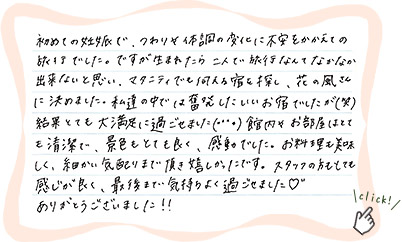 初めての妊娠で、つわりや体調の変化に不安をかかえての
旅行でした。ですが生まれたら二人で旅行なんてなかなか
出来ないと思い、マタニティでも伺える宿を探し、花の風さん
に決めました。私達の中では奮発したいいお宿でしたが(笑)
結果とても大満足に過ごせました(•ᵕ•) 館内やお部屋はとて
も清潔で、景色もとても良く、感動でした。お料理も美味
しく、細かい気配りまで頂き嬉しかったです。スタッフの方もとても
感じが良く、最後まで気持ちよく過ごせました♡
ありがとうございました!!
click!